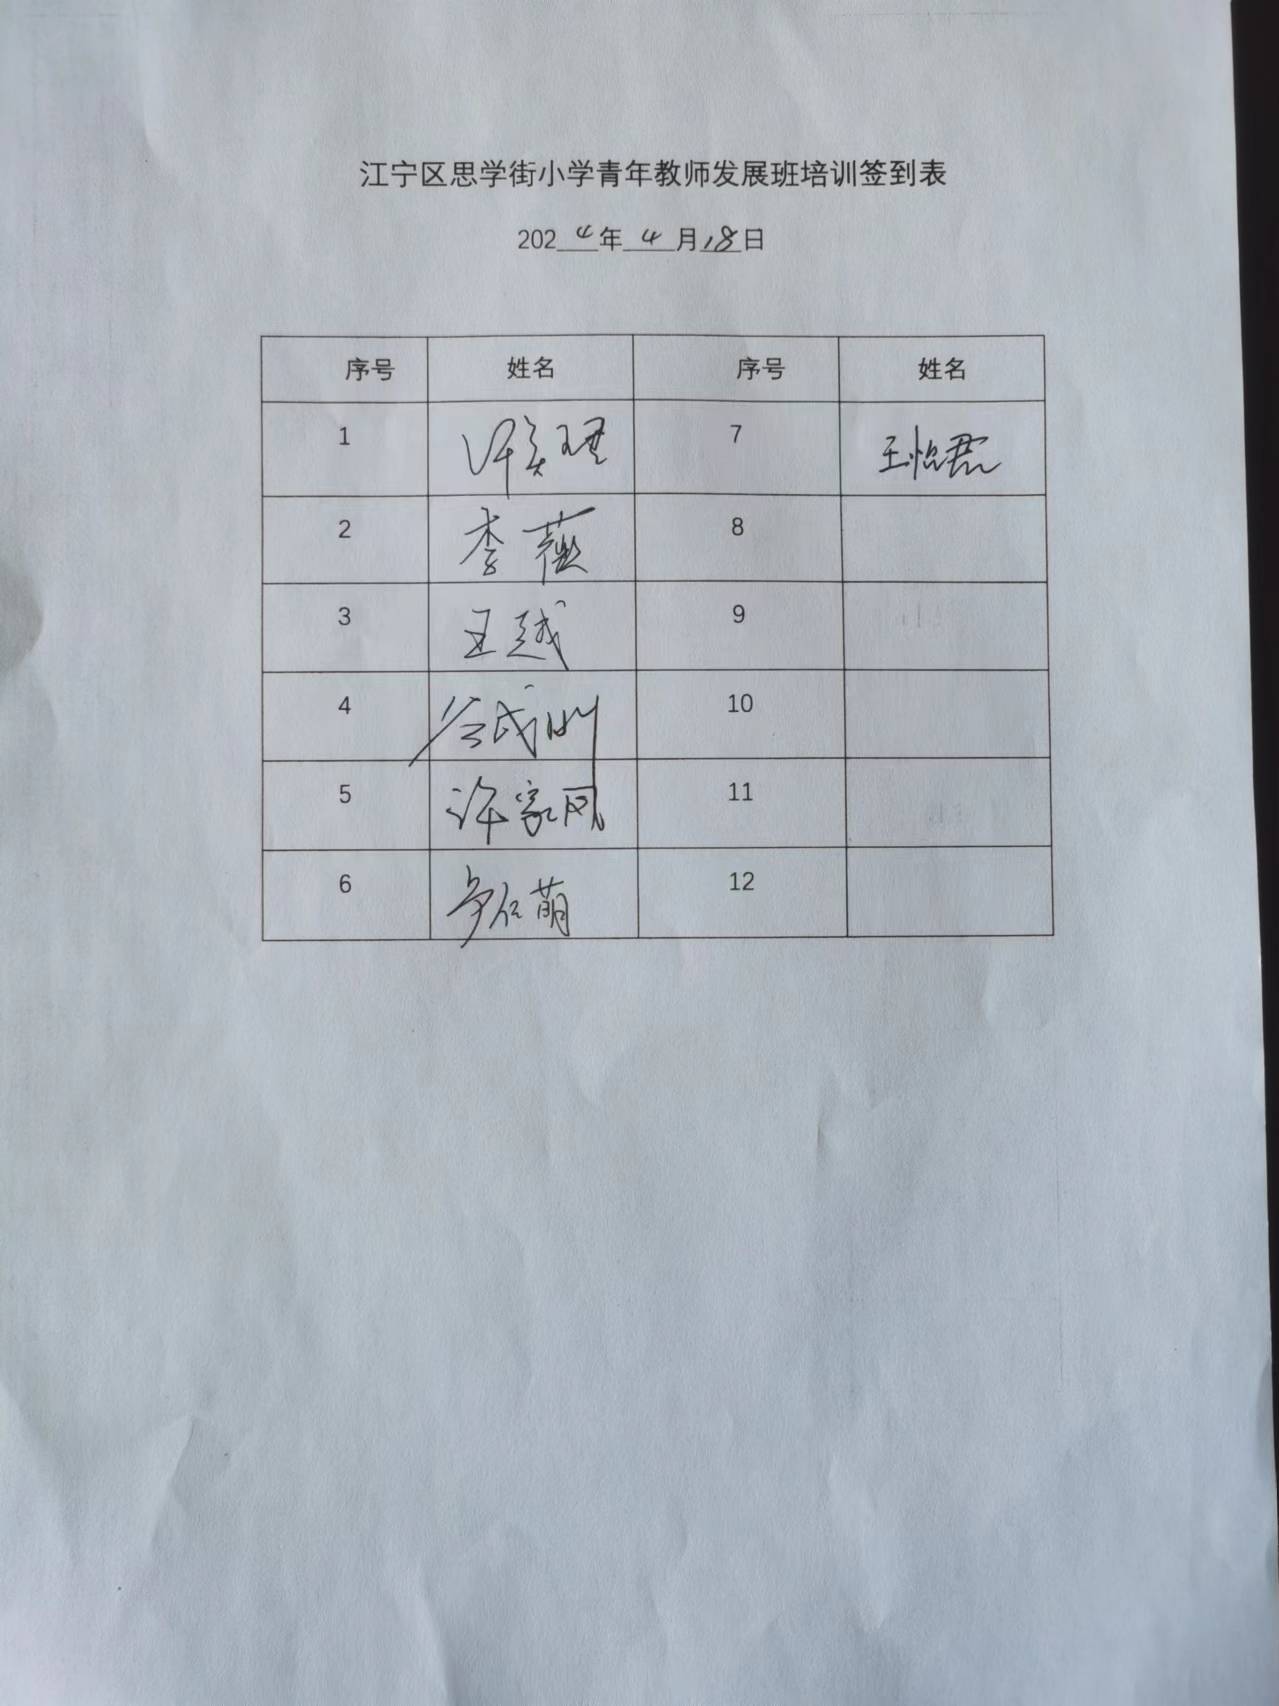 江宁区思学街小学青年教师发展班培训签到表
2024年4月18日
序号 姓名 序号 姓名
1 7 王怡君
2 李薇 8
3 王越 9
4 10
5 许家凤 11
6 12